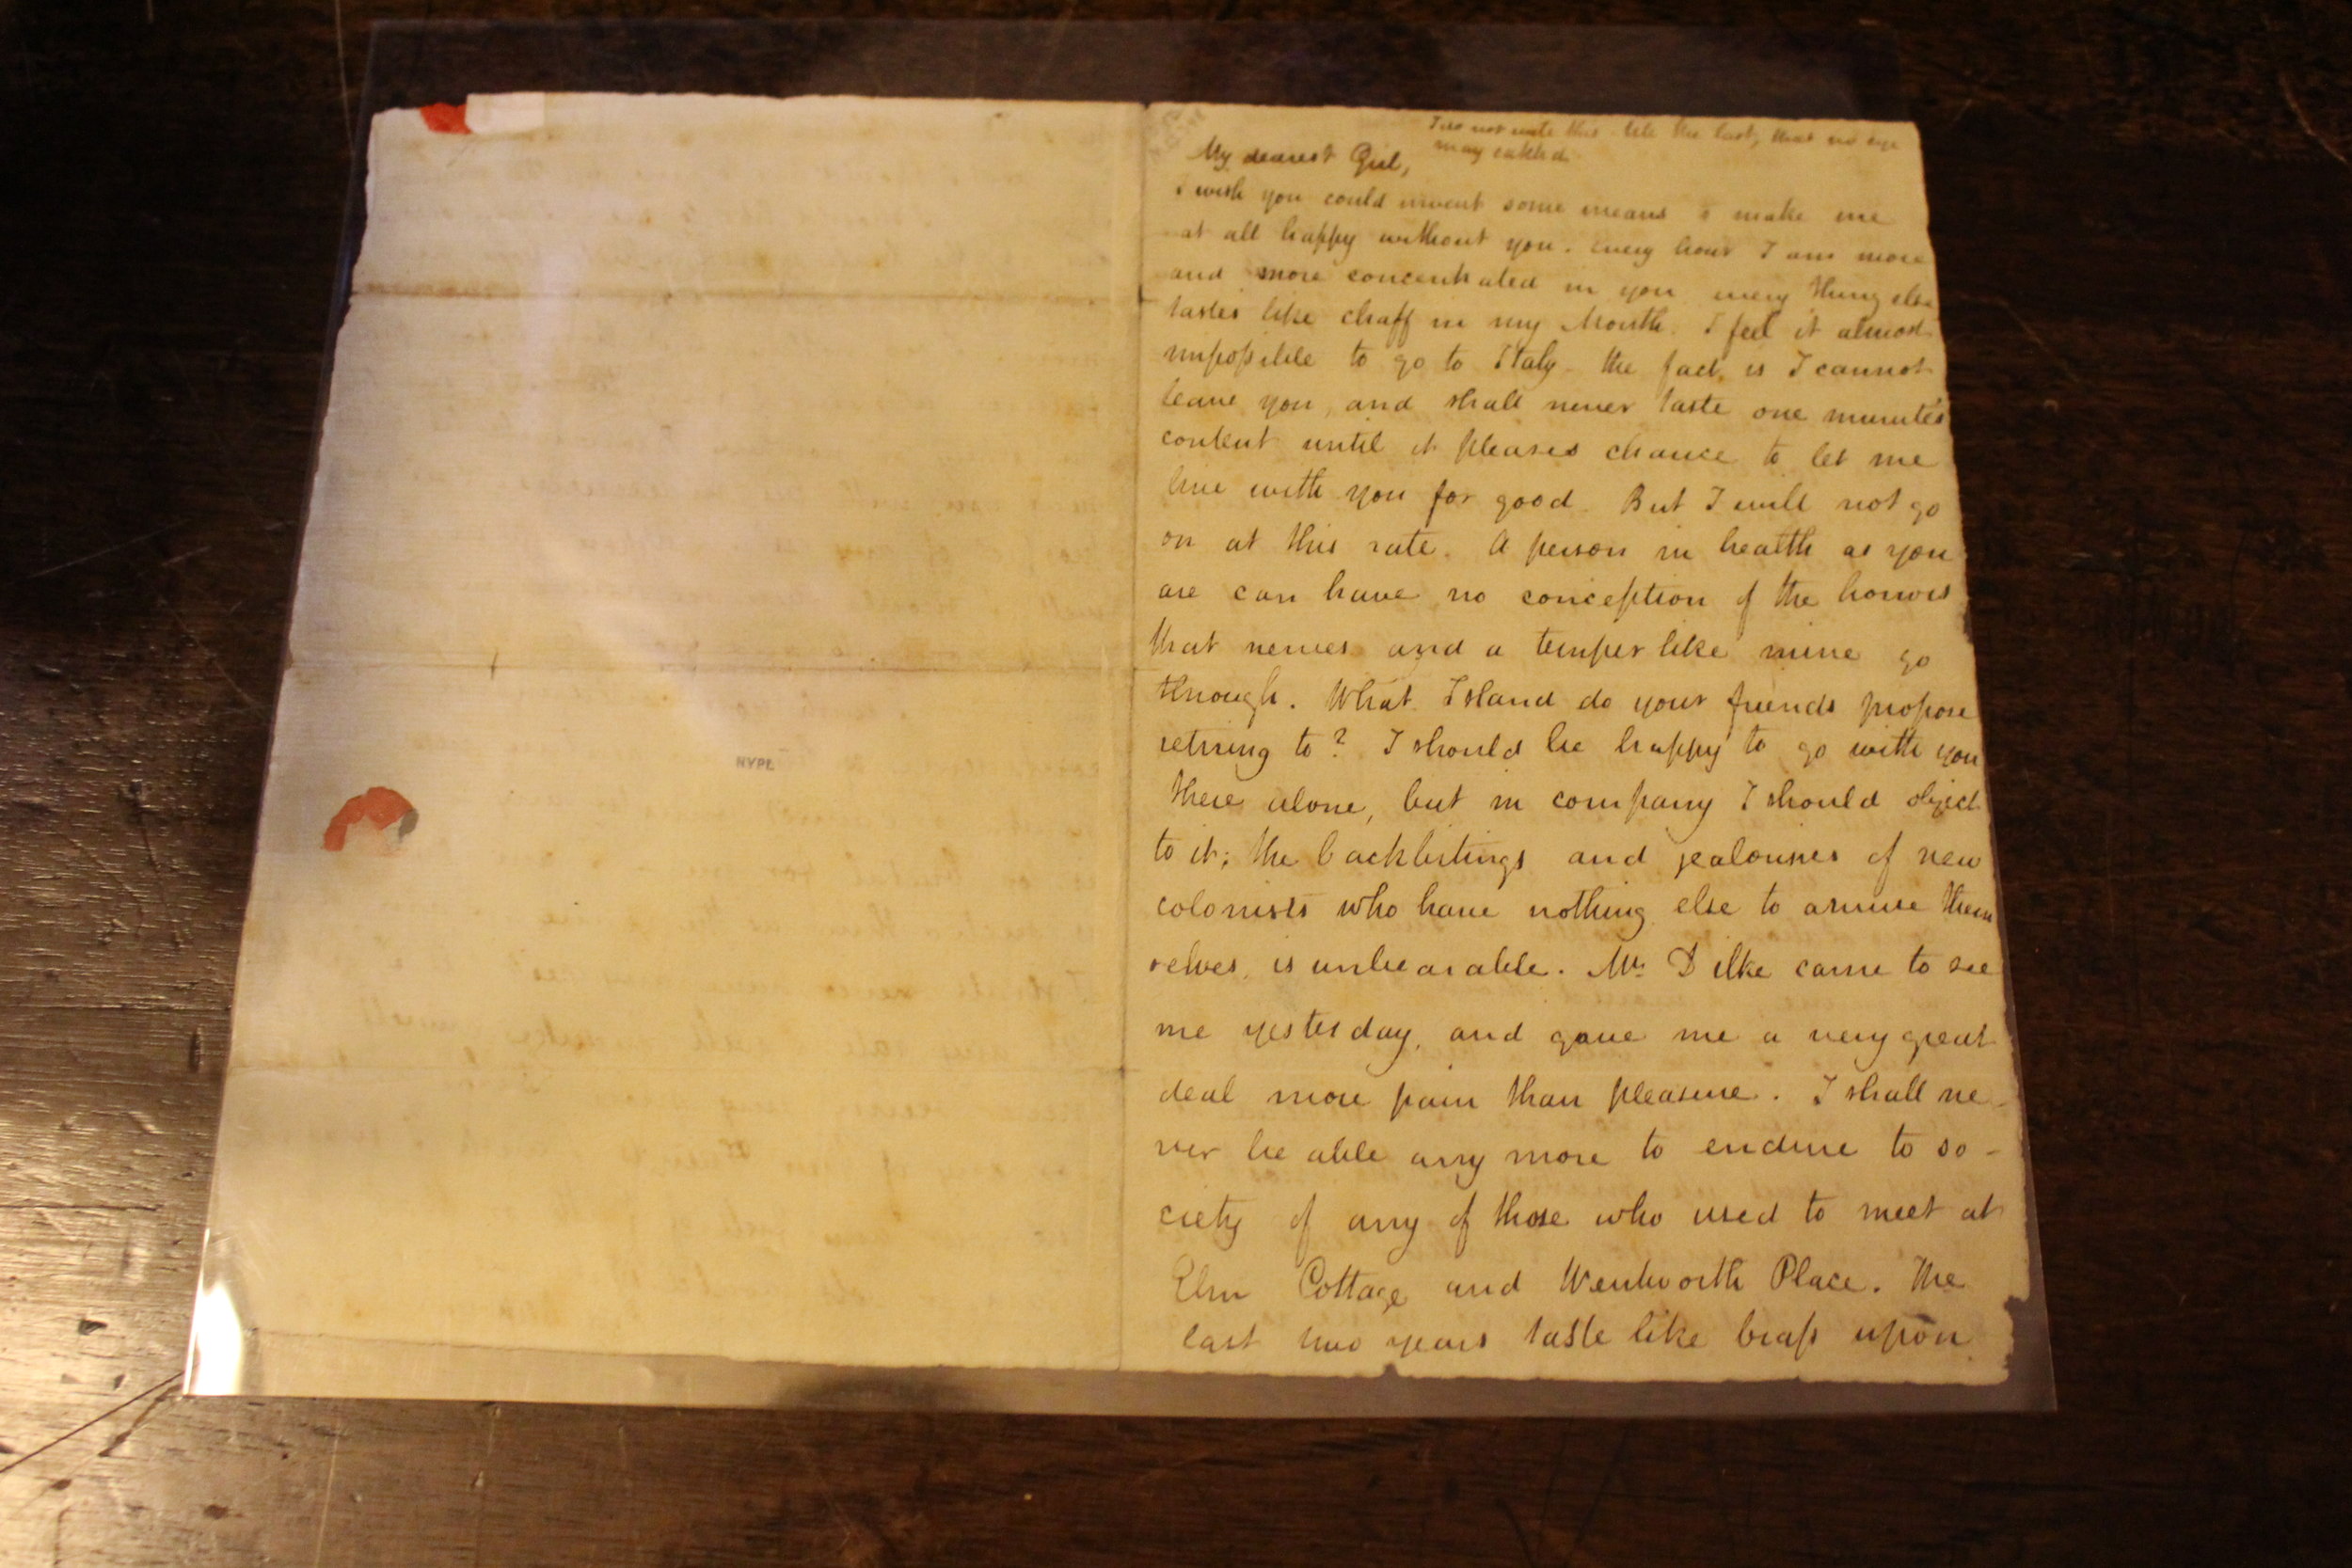 I do not write this till the last, that no eye
may catch it.
My dearest Girl,
I wish you could invent some means to make me
at all happy without you. Every hour I am more
and more concentrated in you every thing else
tastes like chaff in my Mouth. I feel it almost
impossible to go to Italy the fact is I cannot
leave you, and shall never taste one minute's
content until it pleases chance to let me
live with you for good. But I will not go
on at this rate. A person in health as you
are can have no conception of the horrors
that nerves and a temper like mine go
through. What Island do your friends propose
retiring to? I should be happy to go with you
there alone, but in company I should object
to it; the backbitings and jealousies of new
colonists who have nothing else to amuse them
selves, is unbearable. Mr Dilke came to see
me yesterday, and gave me a very great
deal more pain than pleasure. I shall ne-
ver be able any more to endure to so-
ciety of any of those who used to meet at
Elm Cottage and Wentworth Place. The
last two years taste like brass upon
NYPL